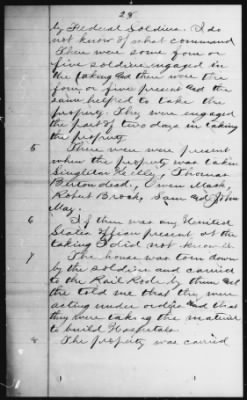 28
by Federal Soldiers. I do
not know of what command
There were some four or
five soldiers engaged in
the taking and there were the
four or five present and the
same helped to take the
property. They were engaged
the part of two days in taking
the property
5 There were were present
when the property was taken
Singleton Kelly, Thomas
Burton dead, Owen Mask,
Robert Brook, Sam and John
May.
6 If there was any United
States officer present at the
taking I did not know it.
7 The house was torn down
by the soldiers and carried
to the Rail Road by them and
the told me that they were
acting under orders and that
they were taking the material
to build Hospitals
8 The property was carried